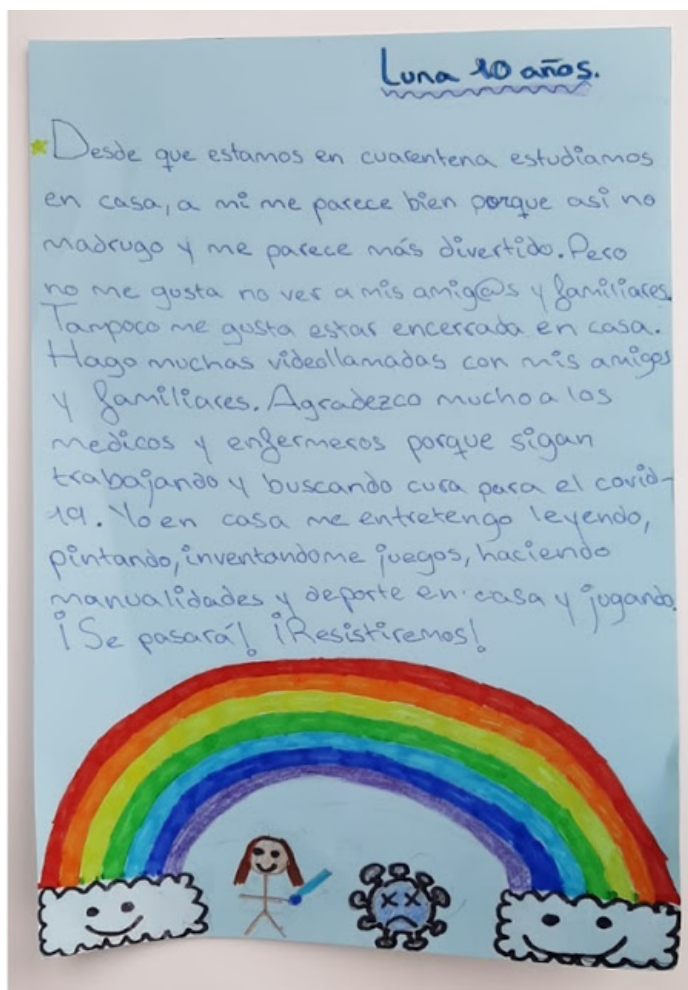 Luna 10 años.
Desde que estamos en cuarentena estudiamos
en casa, a mi me parece bien porque asi no
madrugo y me parece más divertido. Pero
no me gusta no ver a mis amig@s y familiares.
Tampoco me gusta estar encerrada en casa.
Hago muchas videollamadas con mis amigos
y familiares. Agradezco mucho a los
medicos y enfermeros porque sigan
trabajando y buscando cura para el covid-
19. Yo en casa me entretengo leyendo,
pintando, inventandome juegos, haciendo
manualidades y deporte en casa y jugando.
¡Se pasará! ¡Resistiremos!